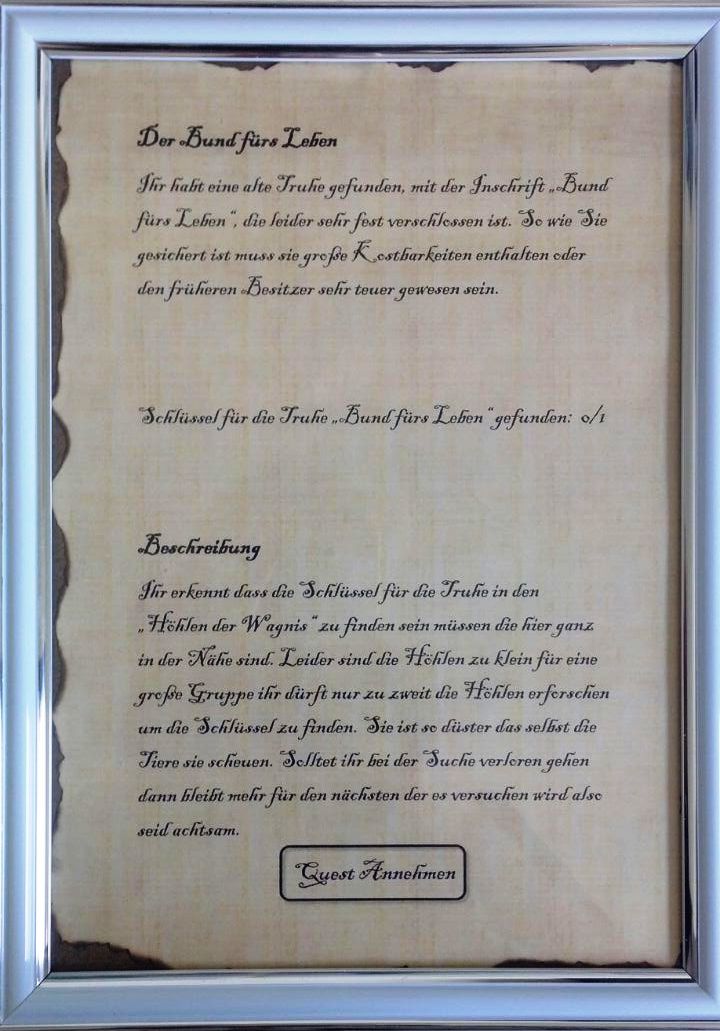 Der Bund fürs Leben
Ihr habt eine alte Truhe gefunden, mit der Inschrift „Bund
fürs Leben“, die leider sehr fest verschlossen ist. So wie Sie
gesichert ist muss sie große Kostbarkeiten enthalten oder
den früheren Besitzer sehr teuer gewesen sein.
Schlüssel für die Truhe „Bund fürs Leben“ gefunden: 0/1
Beschreibung
Ihr erkennt dass die Schlüssel für die Truhe in den
„Höhlen der Wagnis“ zu finden sein müssen die hier ganz
in der Nähe sind. Leider sind die Höhlen zu klein für eine
große Gruppe ihr dürft nur zu zweit die Höhlen erforschen
um die Schlüssel zu finden. Sie ist so düster das selbst die
Tiere sie scheuen. Solltet ihr bei der Suche verloren gehen
dann bleibt mehr für den nächsten der es versuchen wird also
seid achtsam.
Quest Annehmen